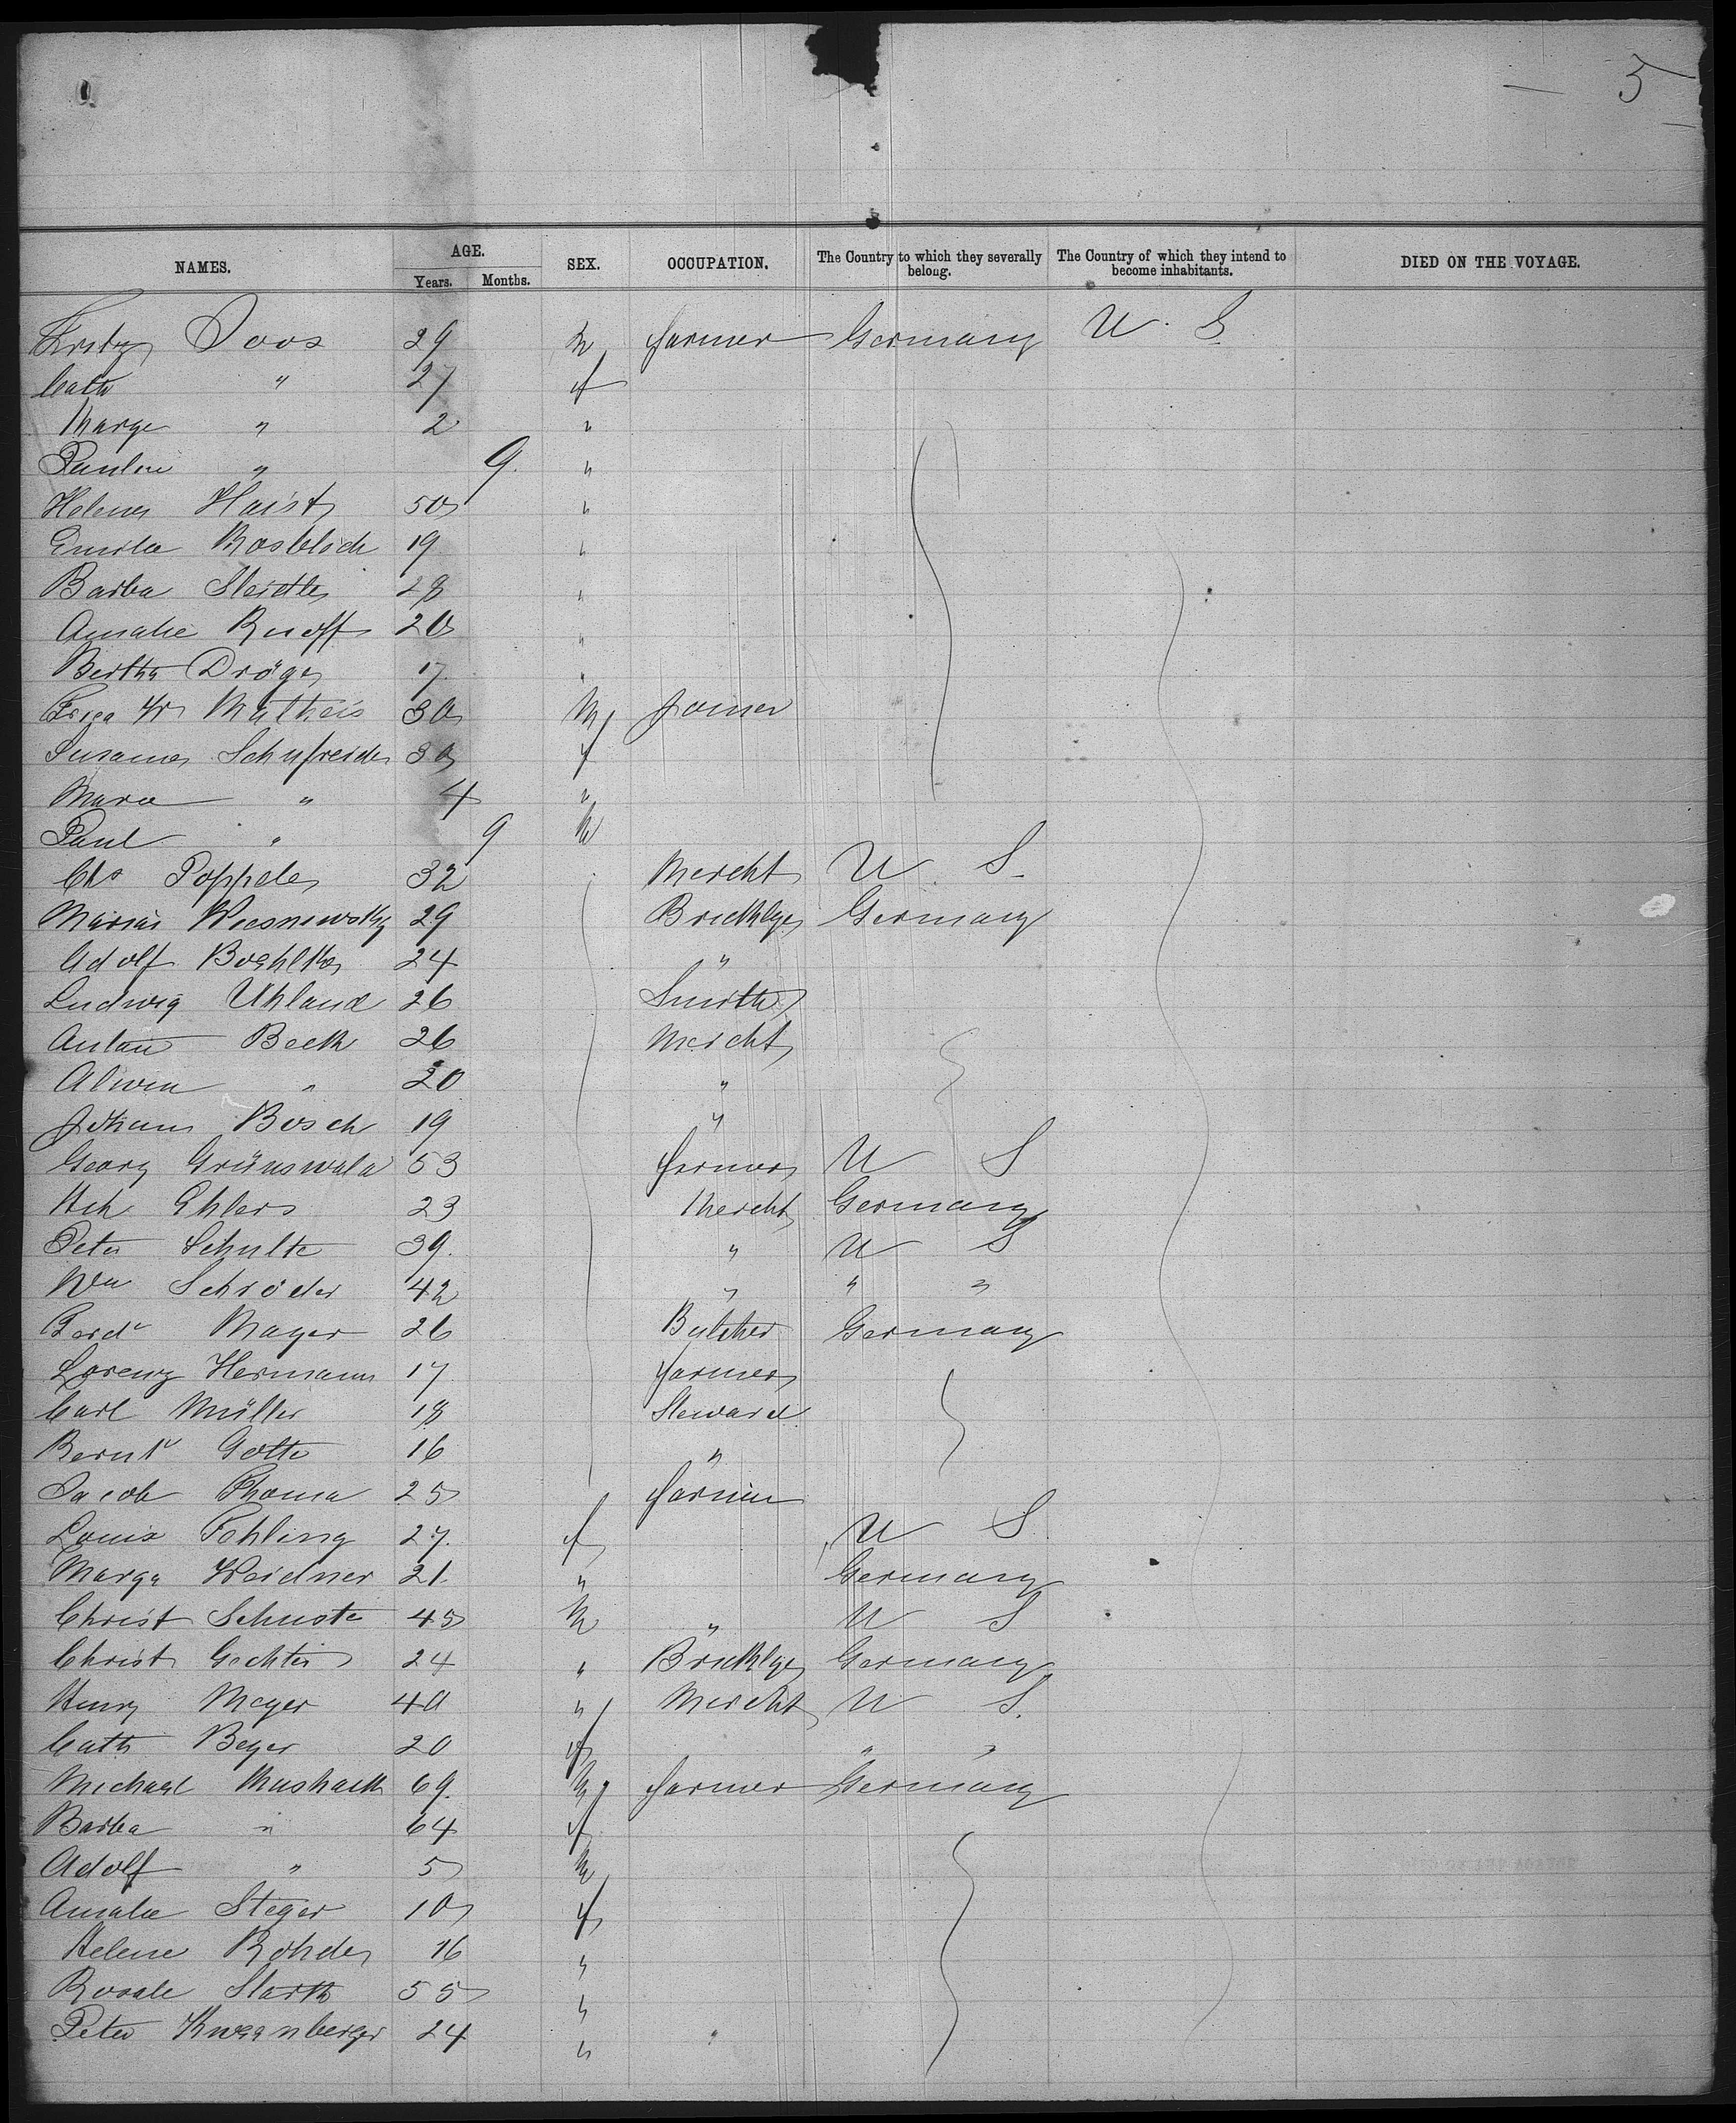 5
NAMES. AGE. Years. Months. SEX. OCCUPATION. The Country to which they severally belong. The Country of which they intend to become inhabitants. DIED ON THE VOYAGE.
Doos 29 farmer Germany U. S.
Cath " 27 f
Marge " 2 "
" 9. "
Helena Haist 50 "
Emilie 19 "
Barba 28 "
Amalie Ruoff 20 "
Bertha Dröge 17 "
Matheis 30 M Joiner
30 f
Maria " 4 "
Paul " 9 M
Chs Poppele 32 Mercht U. S.
29 Bricklyer Germany
Adolf 24 "
Ludwig Uhland 26 Smith
Anton Beck 26 Mercht
Alwin " 20 "
Johann Bosch 19 "
Georg Grünswald 53 farmer U S
Hch Ehlers 23 Mercht Germany
Peter Schulte 39. " U S
Wm Schröder 42 " " "
Ferd Mayer 26 Butcher Germany
Lorenz Hermann 17 farmer
Carl Müller 18 Steward
Gotte 16 "
Jacob Thoma 25 farmer
Louis Fehling 27. f U S
Marga Weidner 21. " Germany
Christ Schuste 45 M " U S
Christ Gechter 24 " Bricklyer Germany
Henry Meyer 40 " Mercht U S.
Cath Beyer 20 f " "
Michael 69. M farmer Germany
Barba " 64 f
Adolf " 5 M
Amalie Steger 10 f
Helene Rohde 16 "
55 "
Peter 24 "